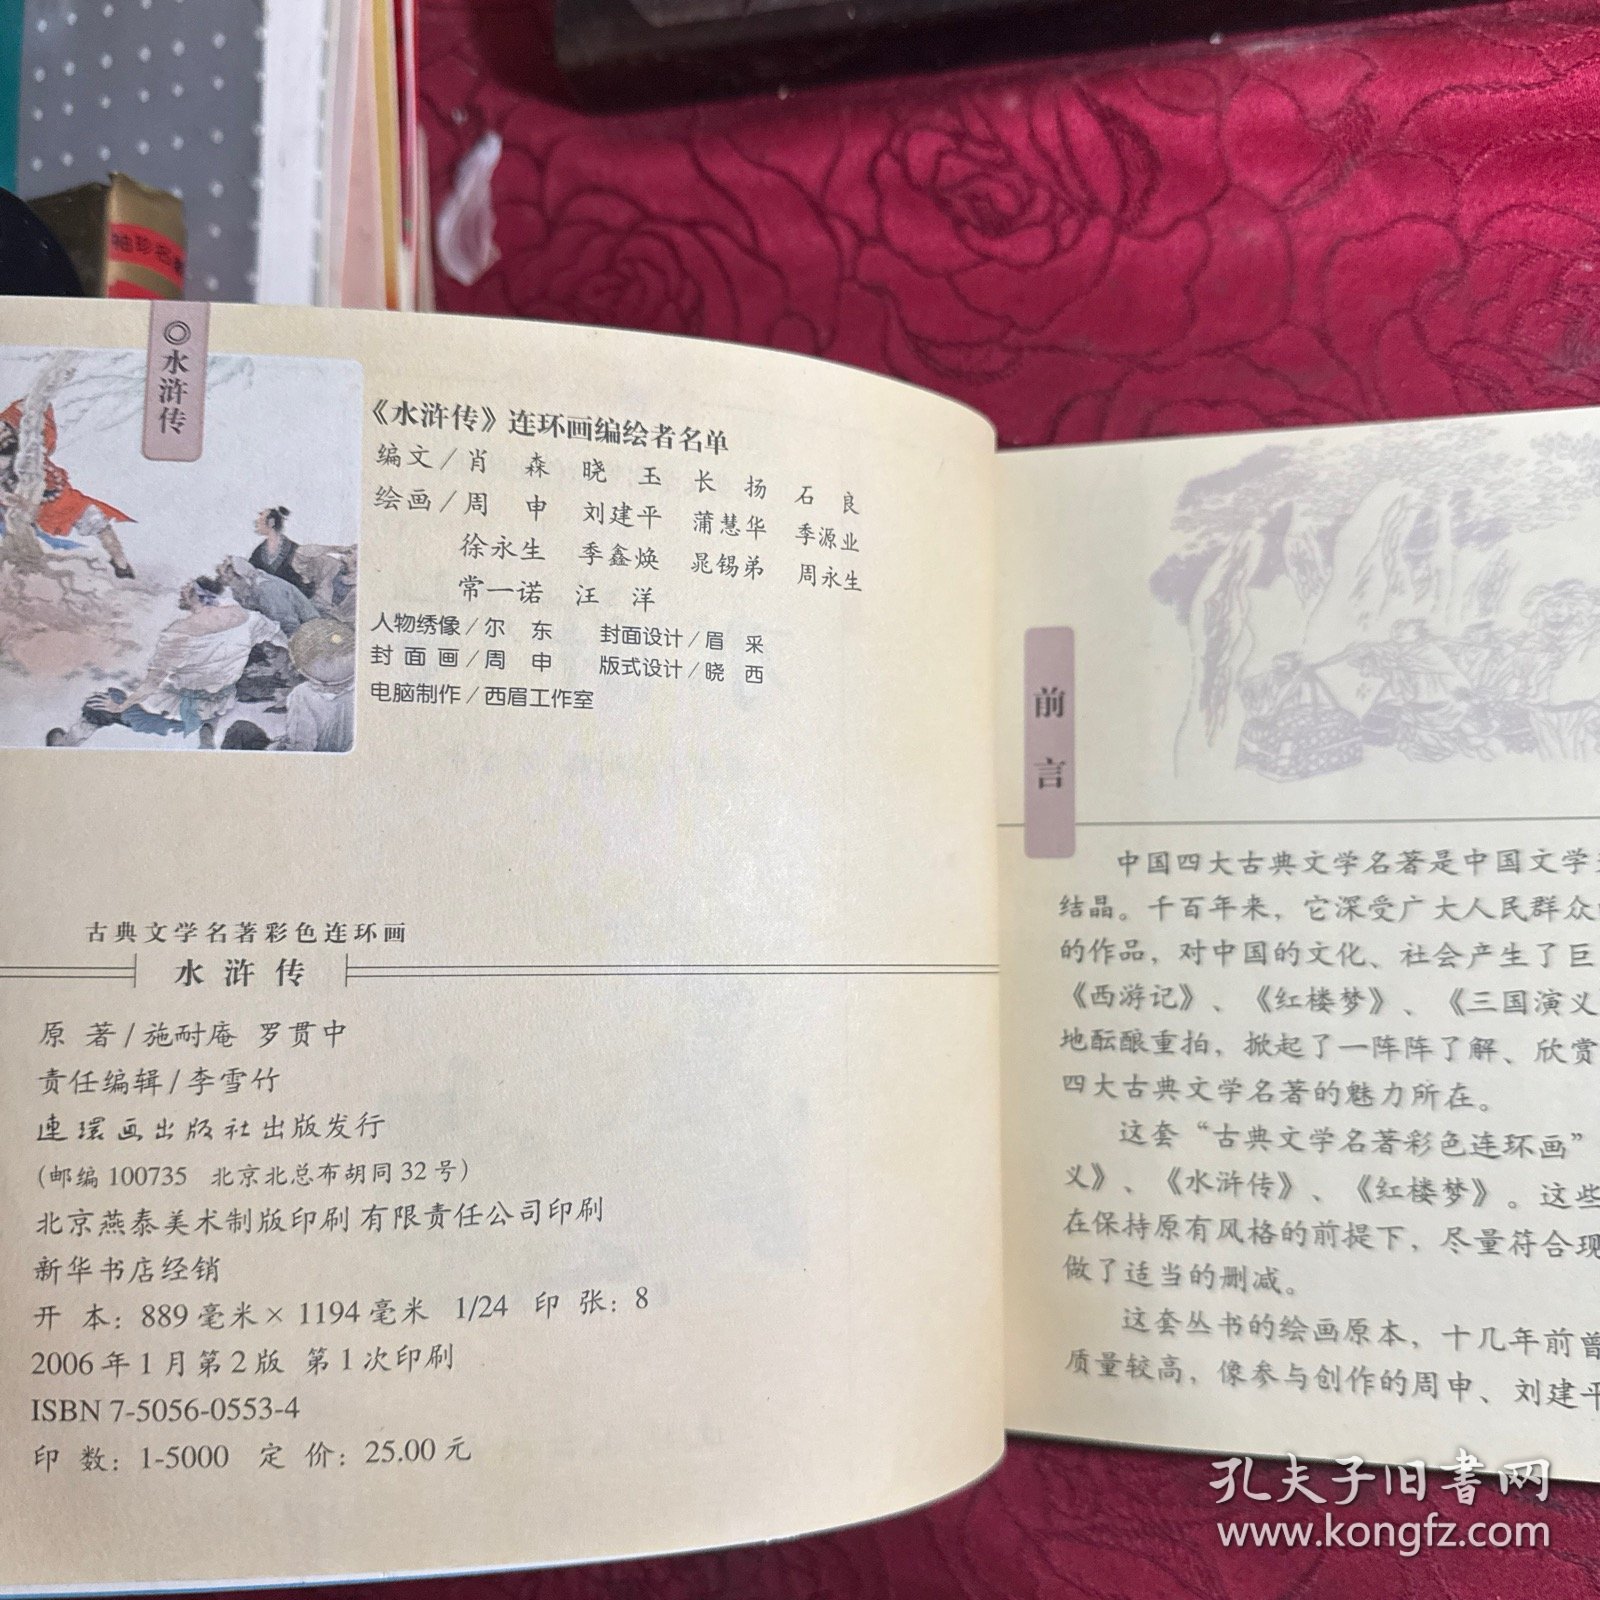 袖珍
水浒传
《水浒传》连环画编绘者名单
编文/肖 森 晓 玉 长 扬 石 良
绘画/周 申 刘建平 蒲慧华 季源业
徐永生 季鑫焕 晁锡弟 周永生
常一诺 汪 洋
人物绣像/尔 东 封面设计/眉 采
封 面 画/周 申 版式设计/晓 西
电脑制作/西眉工作室
古典文学名著彩色连环画
水浒传
原 著/施耐庵 罗贯中
责任编辑/李雪竹
連環画出版社出版发行
(邮编 100735 北京北总布胡同 32 号)
北京燕泰美术制版印刷有限责任公司印刷
新华书店经销
开 本: 889 毫米 × 1194 毫米 1/24 印 张: 8
2006 年 1 月第 2 版 第 1 次印刷
ISBN 7-5056-0553-4
印 数: 1-5000 定 价: 25.00 元
前言
中国四大古典文学名著是中国文学
结晶。千百年来，它深受广大人民群众
的作品，对中国的文化、社会产生了巨
《西游记》、《红楼梦》、《三国演义
地酝酿重拍，掀起了一阵阵了解、欣赏
四大古典文学名著的魅力所在。
这套“古典文学名著彩色连环画”
义》、《水浒传》、《红楼梦》。这些
在保持原有风格的前提下，尽量符合现
做了适当的删减。
这套丛书的绘画原本，十几年前曾
质量较高，像参与创作的周申、刘建平
孔夫子旧书网
www.kongfz.com